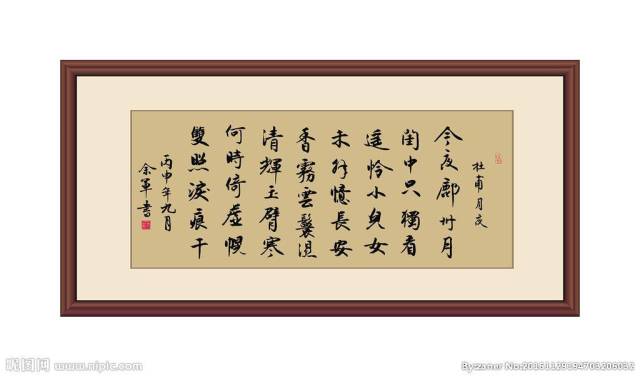 杜甫月夜
今夜鄜州月
闺中只獨看
遥怜小兒女
未解憶長安
香霧雲鬟濕
清輝玉臂寒
何時倚虚幌
雙照淚痕干
丙申年九月
余軍書
昵图网 www.nipic.com
By:zamer No:20161129094703206032